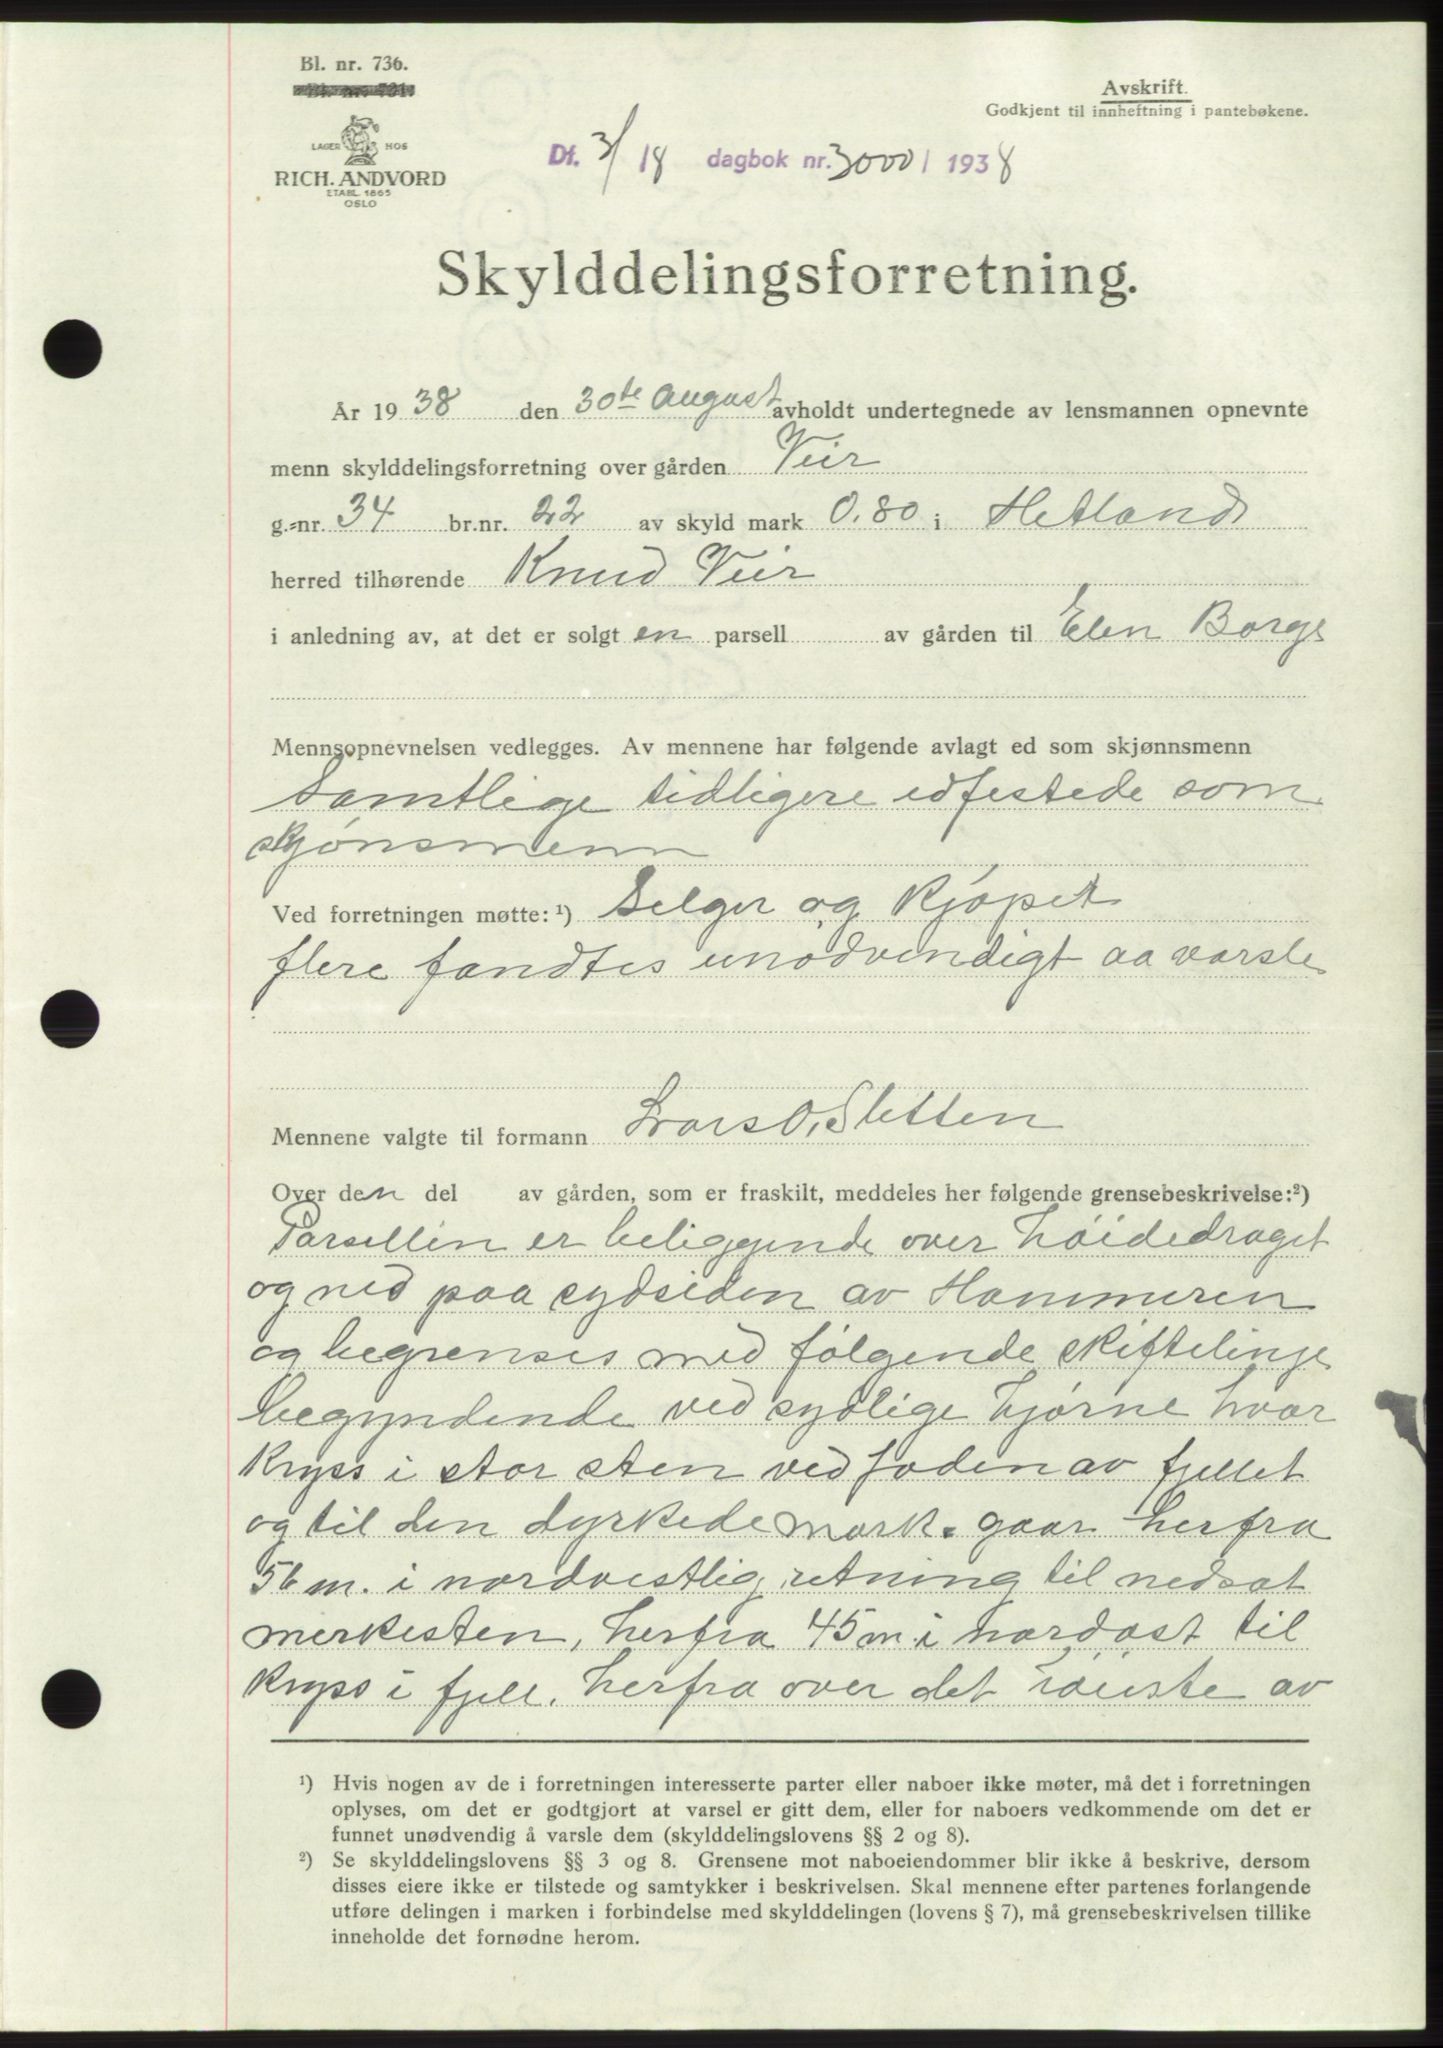 Bl. nr. 736.
Avskrift.
Godkjent til innheftning i pantebøkene.
LAGER HOS
RICH. ANDVORD
ETABL. 1865
OSLO
Df. 3/18 dagbok nr. 3000 / 1938
Skylddelingsforretning.
År 1938 den 30te August avholdt undertegnede av lensmannen opnevnte
menn skylddelingsforretning over gården Veir
g.-nr. 34 br.nr. 22 av skyld mark 0.80 i Hetland
herred tilhørende Knud Veir
i anledning av, at det er solgt en parsell av gården til Elen Borge
Mennsopnevnelsen vedlegges. Av mennene har følgende avlagt ed som skjønnsmenn
Samtlige tidligere edfestede som
skjønsmenn
Ved forretningen møtte: ¹) Selger og kjøper
flere fandtes unødvendigt aa varsle
Mennene valgte til formann Lars O. Sletten
Over den del av gården, som er fraskilt, meddeles her følgende grensebeskrivelse: ²)
Parsellen er beliggende over høidedraget
og ned paa sydsiden av Hammeren
og begrenses med følgende skiftelinje
begyndende ved sydlige hjørne hvor
kryss i stor sten ved foden av fjellet
og til den dyrkede mark. gaar herfra
56 m. i nordvestlig retning til nedsat
merkesten, herfra 45 m. i nordøst til
kryss i fjell, herfra over det høieste av
¹) Hvis nogen av de i forretningen interesserte parter eller naboer ikke møter, må det i forretningen
oplyses, om det er godtgjort at varsel er gitt dem, eller for naboers vedkommende om det er
funnet unødvendig å varsle dem (skylddelingslovens §§ 2 og 8).
²) Se skylddelingslovens §§ 3 og 8. Grensene mot naboeiendommer blir ikke å beskrive, dersom
disses eiere ikke er tilstede og samtykker i beskrivelsen. Skal mennene efter partenes forlangende
utføre delingen i marken i forbindelse med skylddelingen (lovens § 7), må grensebeskrivelsen tillike
inneholde det fornødne herom.